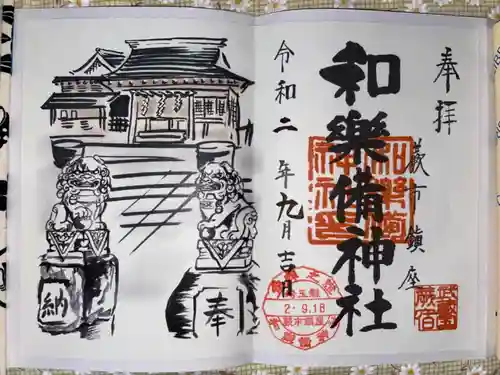 奉拝
蕨市鎮座
和樂備神社
令和二年九月吉日
武蔵
蕨宿
2.9.18
奉
納